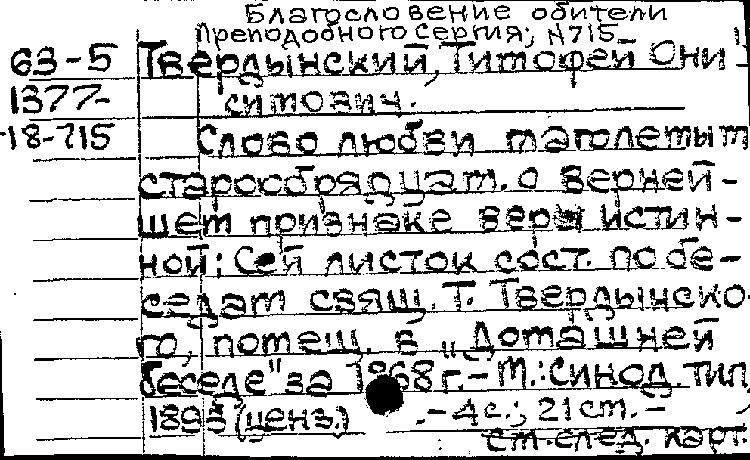 Благословение обители
Преподобного Сергия; №715
63-5 Твердынский, Тимофей Они-
1377- ситович.
18-715 Слово любви глаголемым
старообрядцам о верней-
шем признаке веры истин-
ной: Сей листок сост. по бе-
седам свящ. Т. Твердынско-
го, помещ. в „Домашней
беседе" за 1868 г. – М.: Синод. тип.,
1895 (ценз.) . – 4 с.; 21 см. –
см. след. карт.